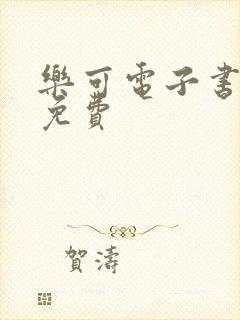 樂可電子書
免費
賀濤